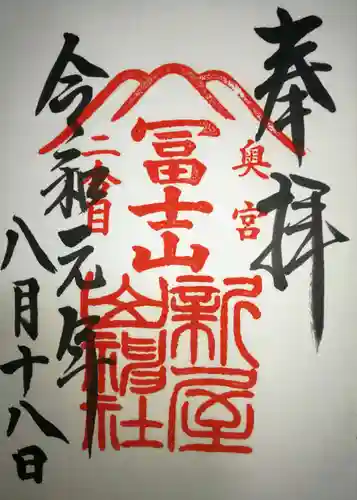 奉拝
奥宮
冨士山
二合目
新屋
山神社
令和元年
八月十八日